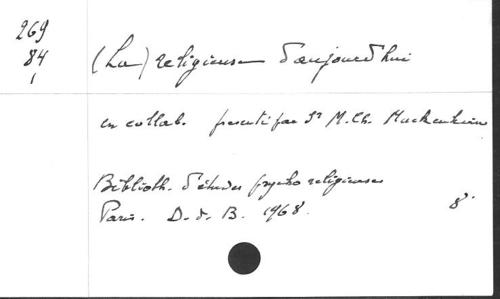 269
84
1
(La) religieuse d'aujourd'hui
en collab. présenté par Sr M. Ch.
Biblioth. d'études psycho religieuses
Paris. D. d. B. 1968. 8°